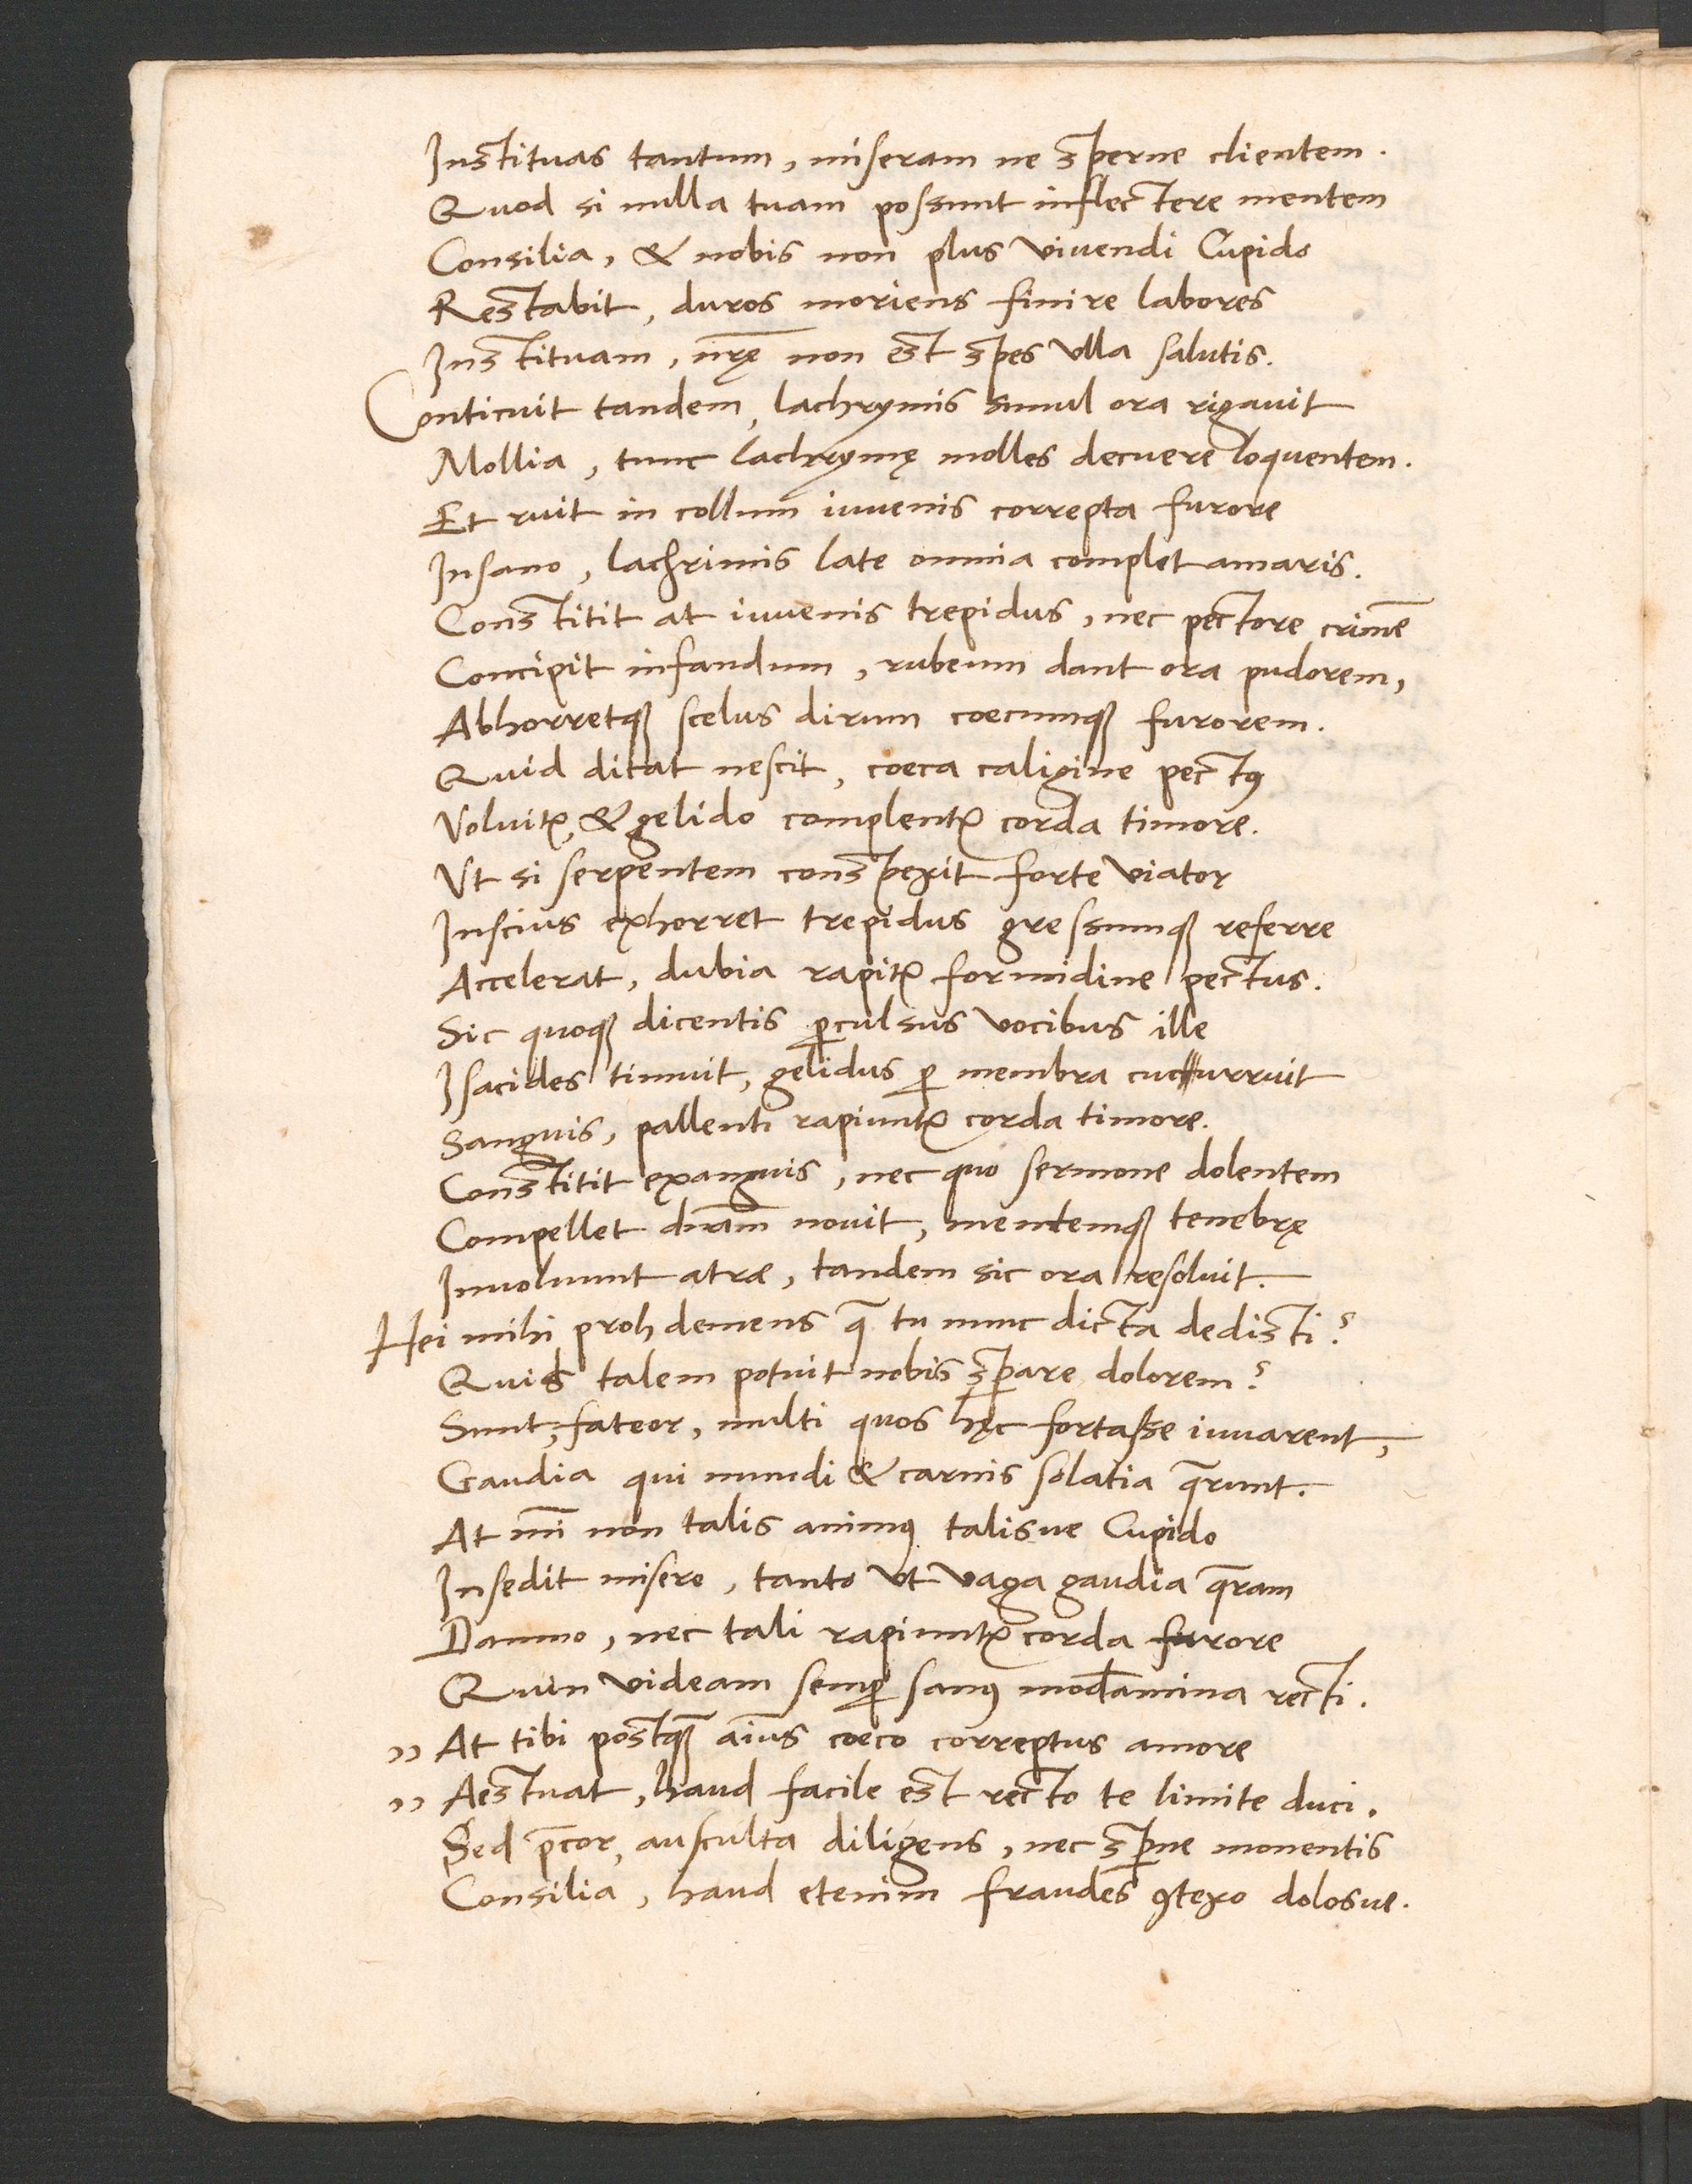 Instituas tantum, miseram ne sperne clientem.
Quod si nulla tuam possunt inflectere mentem
Consilia, & nobis non plus vivendi Cupido
Restabit, duros moriens finire labores
Instituam, nr̄ę non est spes ulla salutis.
Conticuit tandem, lachrymis simul ora rigavit
Mollia, tunc lachrymę molles decuere loquentem.
Et ruit in collum iuvenis correpta furore
Insano, lachrimis late omnia complet amaris.
Constitit at iuvenis trepidus, nec pectore crimē
Concipit infandum, rubeum dant ora pudorem,
Abhorretqꝫ scelus dirum coecumqꝫ furorem.
Quid dicat nescit, coeca caligine pectꝰ
Volvitr̃, & gelido complentr̃ corda timore.
Ut si serpentem conspexit forte viator
Inscius exhorret trepidus gressumqꝫ referre
Accelerat, dubia rapitr̃ formidine pectus.
Sic quoqꝫ dicentis ꝑculsus vocibus ille
Isacides timuit, gelidus ꝑ membra cucurruit
Sanguis, pallenti rapiuntr̃ corda timore.
Constitit exanguis, nec quo sermone dolentem
Compellet dn̄am novit, mentemqꝫ tenebrę
Involvunt atræ, tandem sic ora resolvit.
Hei mihi proh demens q̄ tu nunc dicta dedisti?
Quis talem potuit nobis sꝑare dolorem?
Sunt, fateor, multi quos hęc fortasse iuvarent,
Gaudia qui mundi & carnis solatia q̄runt.
At m̄i non talis animꝰ talisve Cupido
Insedit misero, tanto ut vaga gaudia q̄ram
Damno, nec tali rapiuntr̃ corda furore
Quin videam semꝑ sanꝰ mod̄amina recti.
,, At tibi postqꝫ̄ aīus coeco correptus amore
,, Aestuat, haud facile est recto te limite duci.
Sed p̄cor, ausculta diligens, nec sꝑne monentis
Consilia, haud etenim fraudes ꝯtexo dolosve.